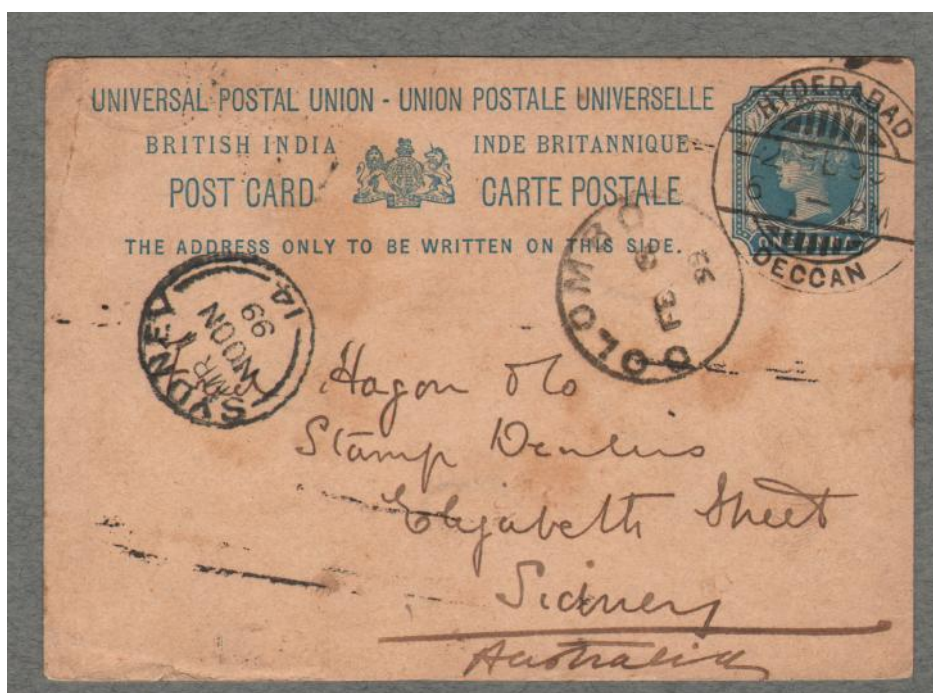 UNIVERSAL POSTAL UNION - UNION POSTALE UNIVERSELLE
BRITISH INDIA INDE BRITANNIQUE
POST CARD CARTE POSTALE
THE ADDRESS ONLY TO BE WRITTEN ON THIS SIDE.
HYDERABAD
6 PM
DECCAN
ONE ANNA
COLOMBO
FE
99
SYDNEY
14
MR
NOON
99
Hagon & Co
Stamp Dealers
Elizabeth Street
Sidney
Australia